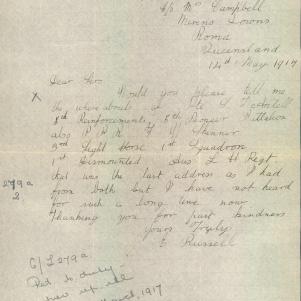 C/o Mrs Campbell
Merino Downs
Roma
Queensland
14th May 1917
Dear Sir
X Would you please tell me
the whereabouts of Pte L T
8th Reinforcements 5th Pioneer Battalion
also Skinner
3rd Light horse 1st Squadron
1st Dismounted Aus L H Regt
that was the last address as I had
from both but I have not heard
for such a long time now
Thanking you for past kindness
Yours Truly
E Russell
279a
2
C/L 279a
to duty
1917